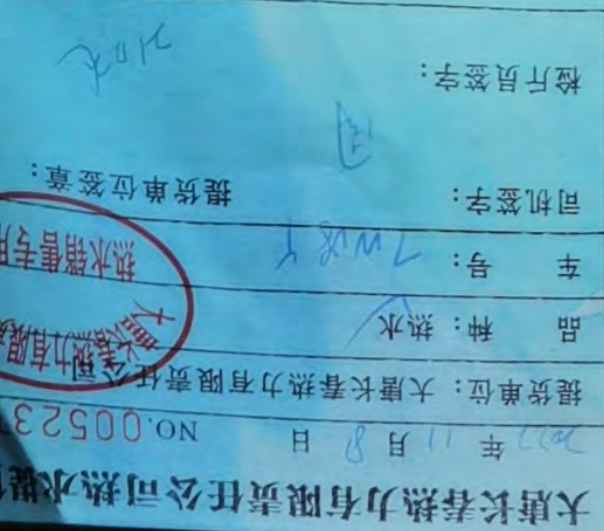 大唐长春热力有限责任公司热水提
2022年 11月 8日 NO.00523
提货单位：大唐长春热力有限责任公司
品 种：热水
车 号：
司机签字： 提货单位签章：
检斤员签字：
210元
大唐长春热力有限责
热水销售专用